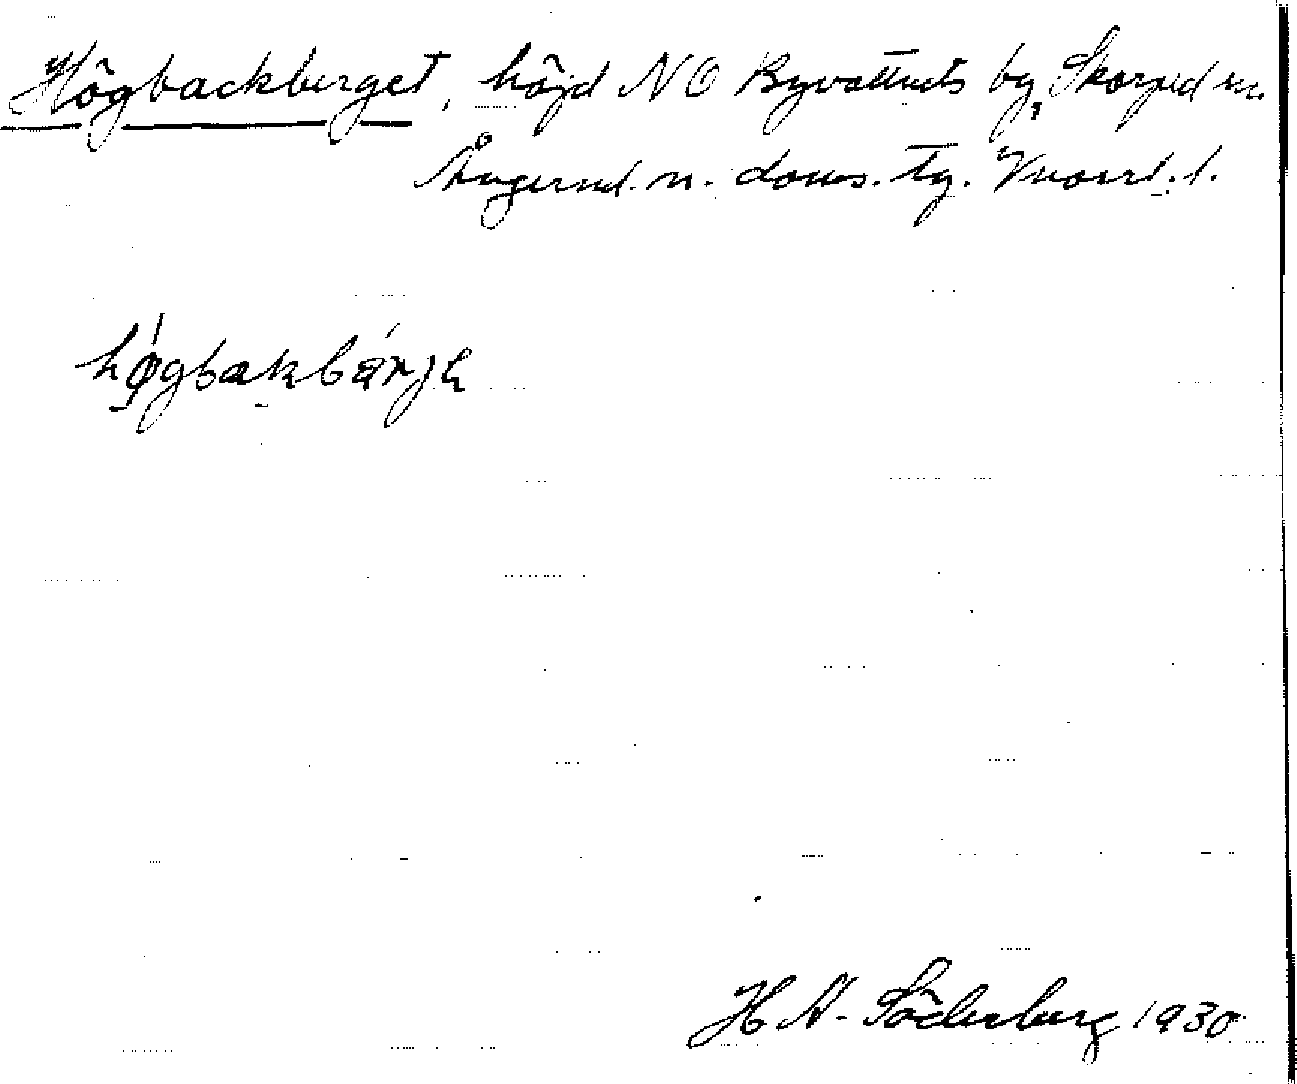 Högbackberget, höjd NO Byvattnets by, Skorped sn.
Ångerml. n. doms. tg. Vnorrl. l.
høgbakbärjə
H A. Söderberg 1930